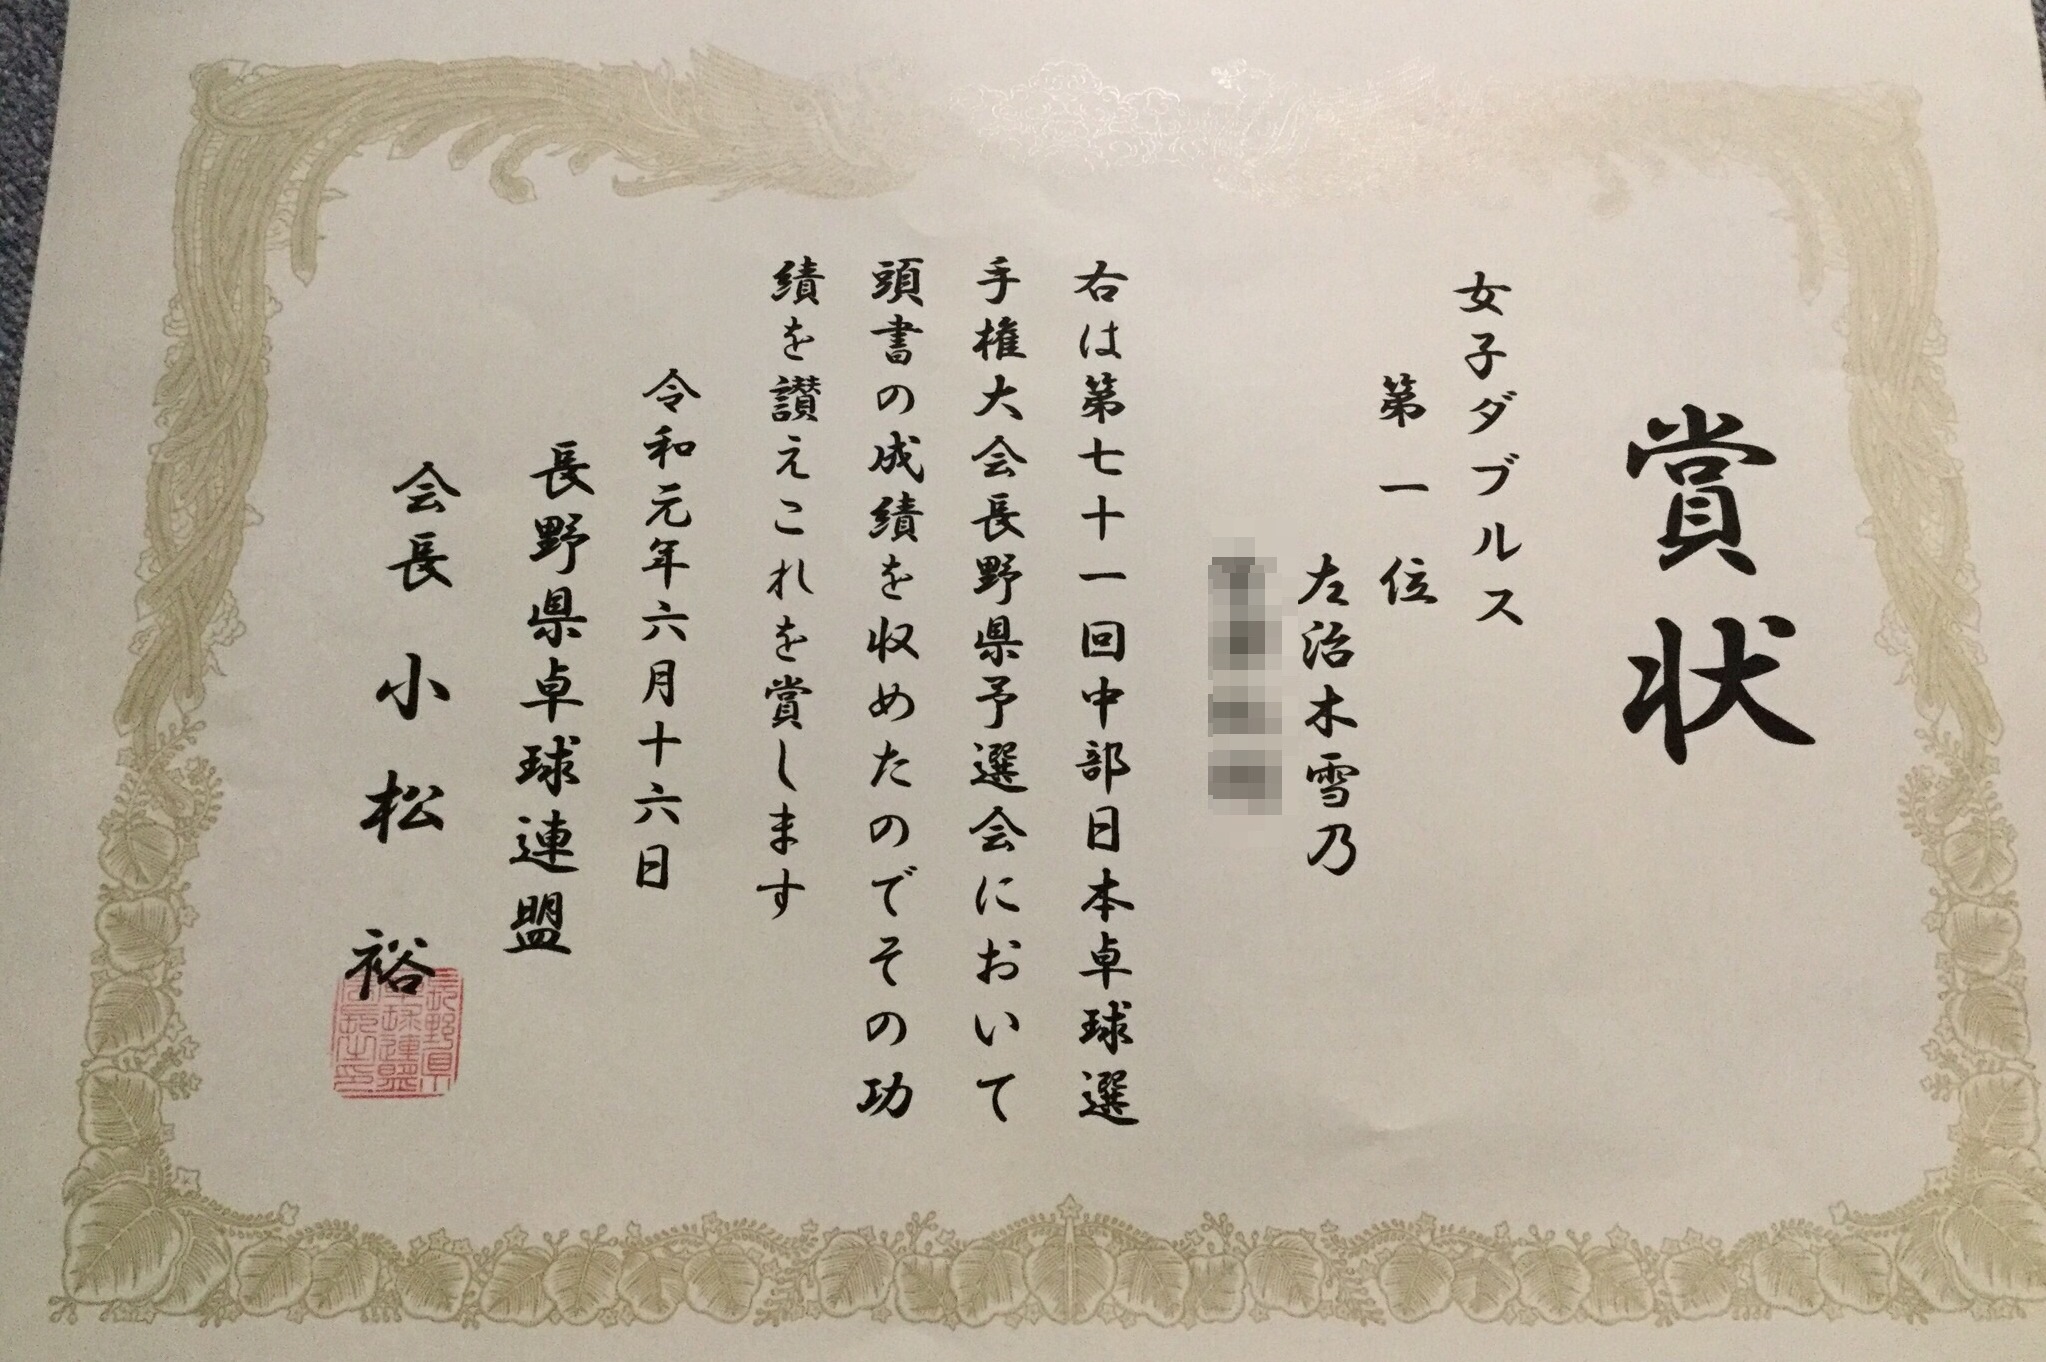 賞状
女子ダブルス
第一位
左治木雪乃
右は第七十一回中部日本卓球選
手権大会長野県予選会において
頭書の成績を収めたのでその功
績を讃えこれを賞します
令和元年六月十六日
長野県卓球連盟
会長 小松 裕